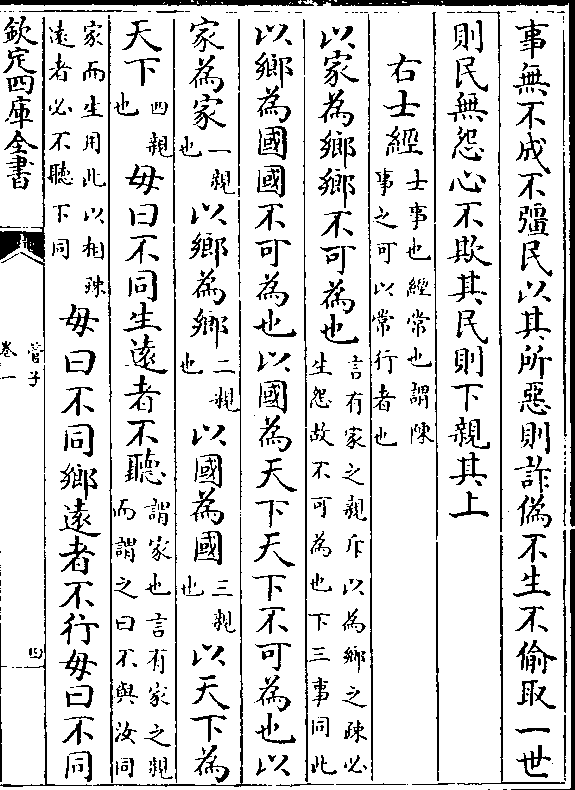 事無不成不彊民以其所惡則詐偽不生不偷取一世
則民無怨心不欺其民則下親其上
右士經士事也經常也謂陳事之可以常行者也
以家為鄉鄉不可為也言有家之親斥以為鄉之疎必生怨故不可為也下三事同此
以鄉為國國不可為也以國為天下天下不可為也以
家為家一親也以鄉為鄉二親也以國為國三親也以天下為
天下四親也毋曰不同生遠者不聽謂家也言有家之親而謂之曰不與汝同
家而生用此以相疎遠者必不聽下同毋曰不同鄉遠者不行毋曰不同
欽定四庫全書
管子
卷一
四